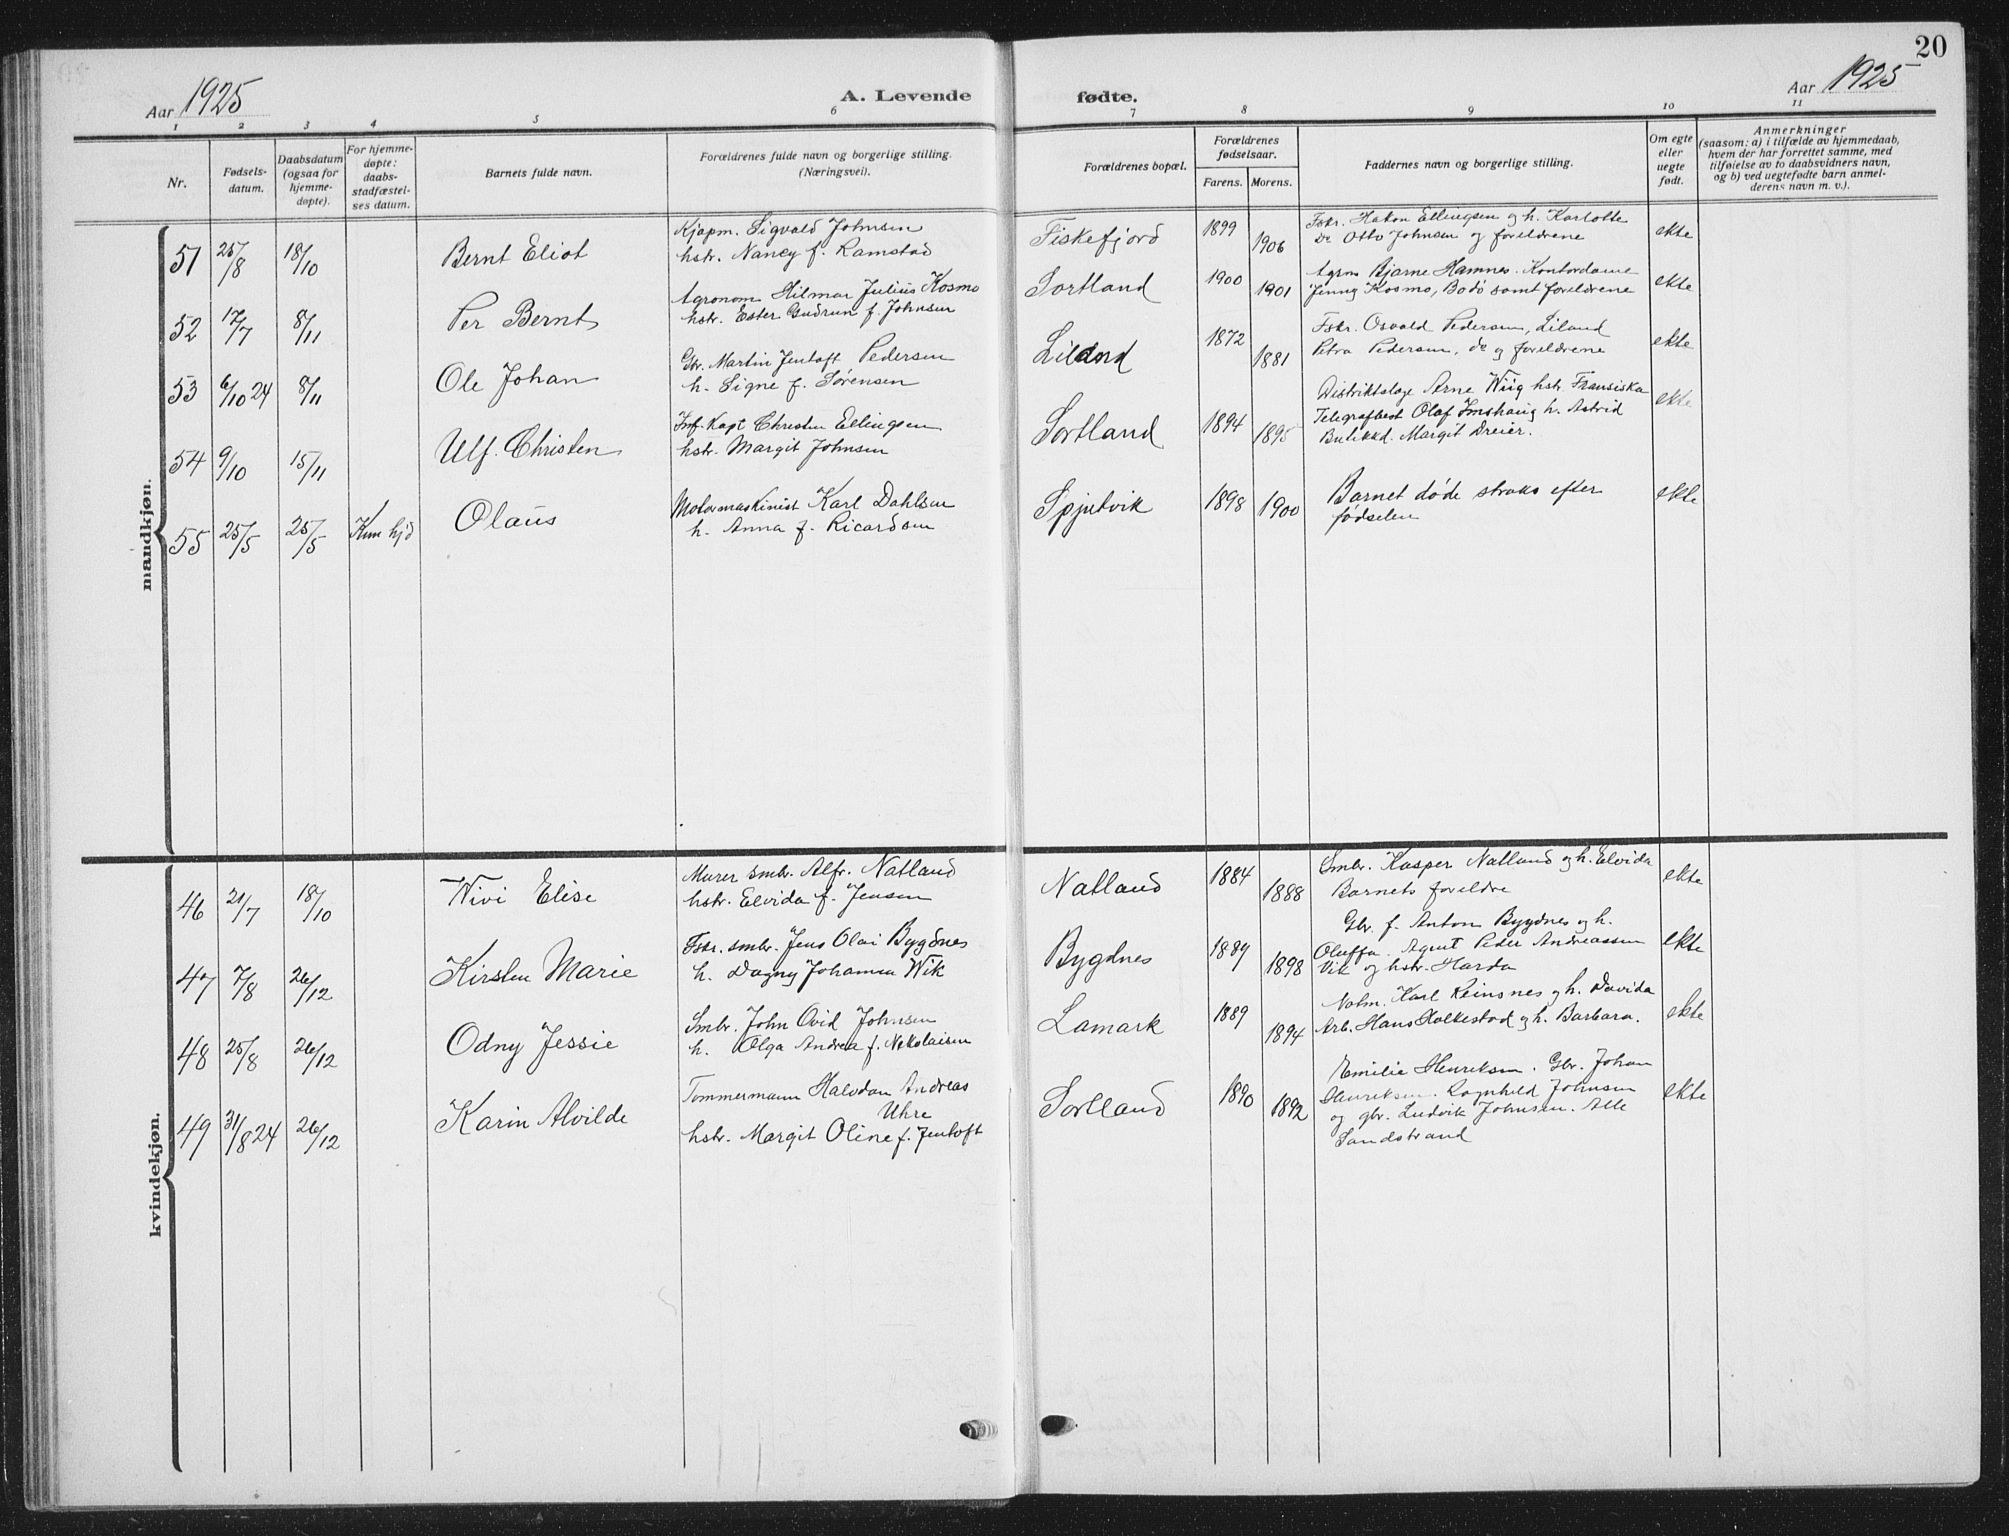 20
Aar 1925 A. Levende fødte. Aar 1925
1 2 3 4 5 6 7 8 9 10 11
Nr.
Fødsels-
datum.
Daabsdatum
(ogsaa for
hjemme-
døpte).
For hjemme-
døpte:
daabs-
stadfæstel-
ses datum.
Barnets fulde navn.
Forældrenes fulde navn og borgerlige stilling.
(Næringsvei).
Forældrenes bopæl.
Forældrenes
fødselsaar.
Farens. Morens.
Faddernes navn og borgerlige stilling.
Om egte
eller
uegte
født.
Anmerkninger
(saasom: a) i tilfælde av hjemmedaab,
hvem der har forrettet samme, med
tilføielse av to daabsvidners navn,
og b) ved uegtefødte barn anmel-
derens navn m. v.).
mandkjøn.
51 25/8 18/10 Bernt Eliot
Kjøpm. Sigvald Johnsen
hstr. Nancy f. Ramstad
Fiskefjord 1899 1906
Fskr. Hakon Ellingsen og h. Karlotte
Do Otto Johnsen og foreldrene
ekte
52 17/7 8/11 Per Bernt
Agronom Hilmar Julius Kosmo
hstr. Ester Gudrun f. Johnsen
Sortland 1900 1901
Agrm Bjarne Hamnes. Kontordame
Jenny Kosmo, Bodø samt foreldrene
ekte
53 6/10 24 8/11 Ole Johan
Gbr. Martin Jentoft Pedersen
h. Signe f. Sørensen
Liland 1872 1881
Fskr. Osvald Pedersen, Liland
Petra Pedersen, do og foreldrene
ekte
54 9/10 15/11 Ulf. Christen
Inf. Kapt Christen Ellingsen
hstr. Margit Johnsen
Sortland 1894 1895
Distriktslæge Arne Wiig hstr. Fransiska
Telegrafbest Olaf Imshaug h. Astrid
Butikkd. Margit Dreier.
ekte
55 25/5 25/5 Kun hjd Olaus
Motormaskinist Karl Dahlsen
h. Anna f. Ricardsen
Spjutvik 1898 1900
Barnet døde straks efter
fødselen
ekte
kvindekjøn.
46 21/7 18/10 Wivi Elise
Murer smbr. Alfr. Natland
hstr. Elvida f. Jensen
Natland 1884 1888
Smbr. Kasper Natland og h. Elvida
Barnets foreldre
ekte
47 7/8 26/12 Kirsten Marie
Fskr. smbr. Jens Olai Bygdnes
h. Dagny Johanna Wik
Bygdnes 1889 1898
Gbr. f. Anton Bygdnes og h.
Oluffa. Agent Peder Andreassen
Vik og hstr. Harda
ekte
48 25/8 26/12 Odny Jessie
Smbr. John Ovid Johnsen
h. Olga Andrea f. Nikolaisen
Lamark 1889 1894
Karl Reinsnes og h. Davida
Arb. Hans Holkestad og h. Barbara.
ekte
49 31/8 24 26/12 Karin Alvilde
Tømmermann Halvdan Andreas
Uhre
hstr. Margit Oline f. Jentoft
Sortland 1890 1892
Emilie Henriksen. Gbr. Johan
Henriksen. Ragnhild Johnsen
og gbr. Ludvik Johnsen. Alle
Sandstrand
ekte